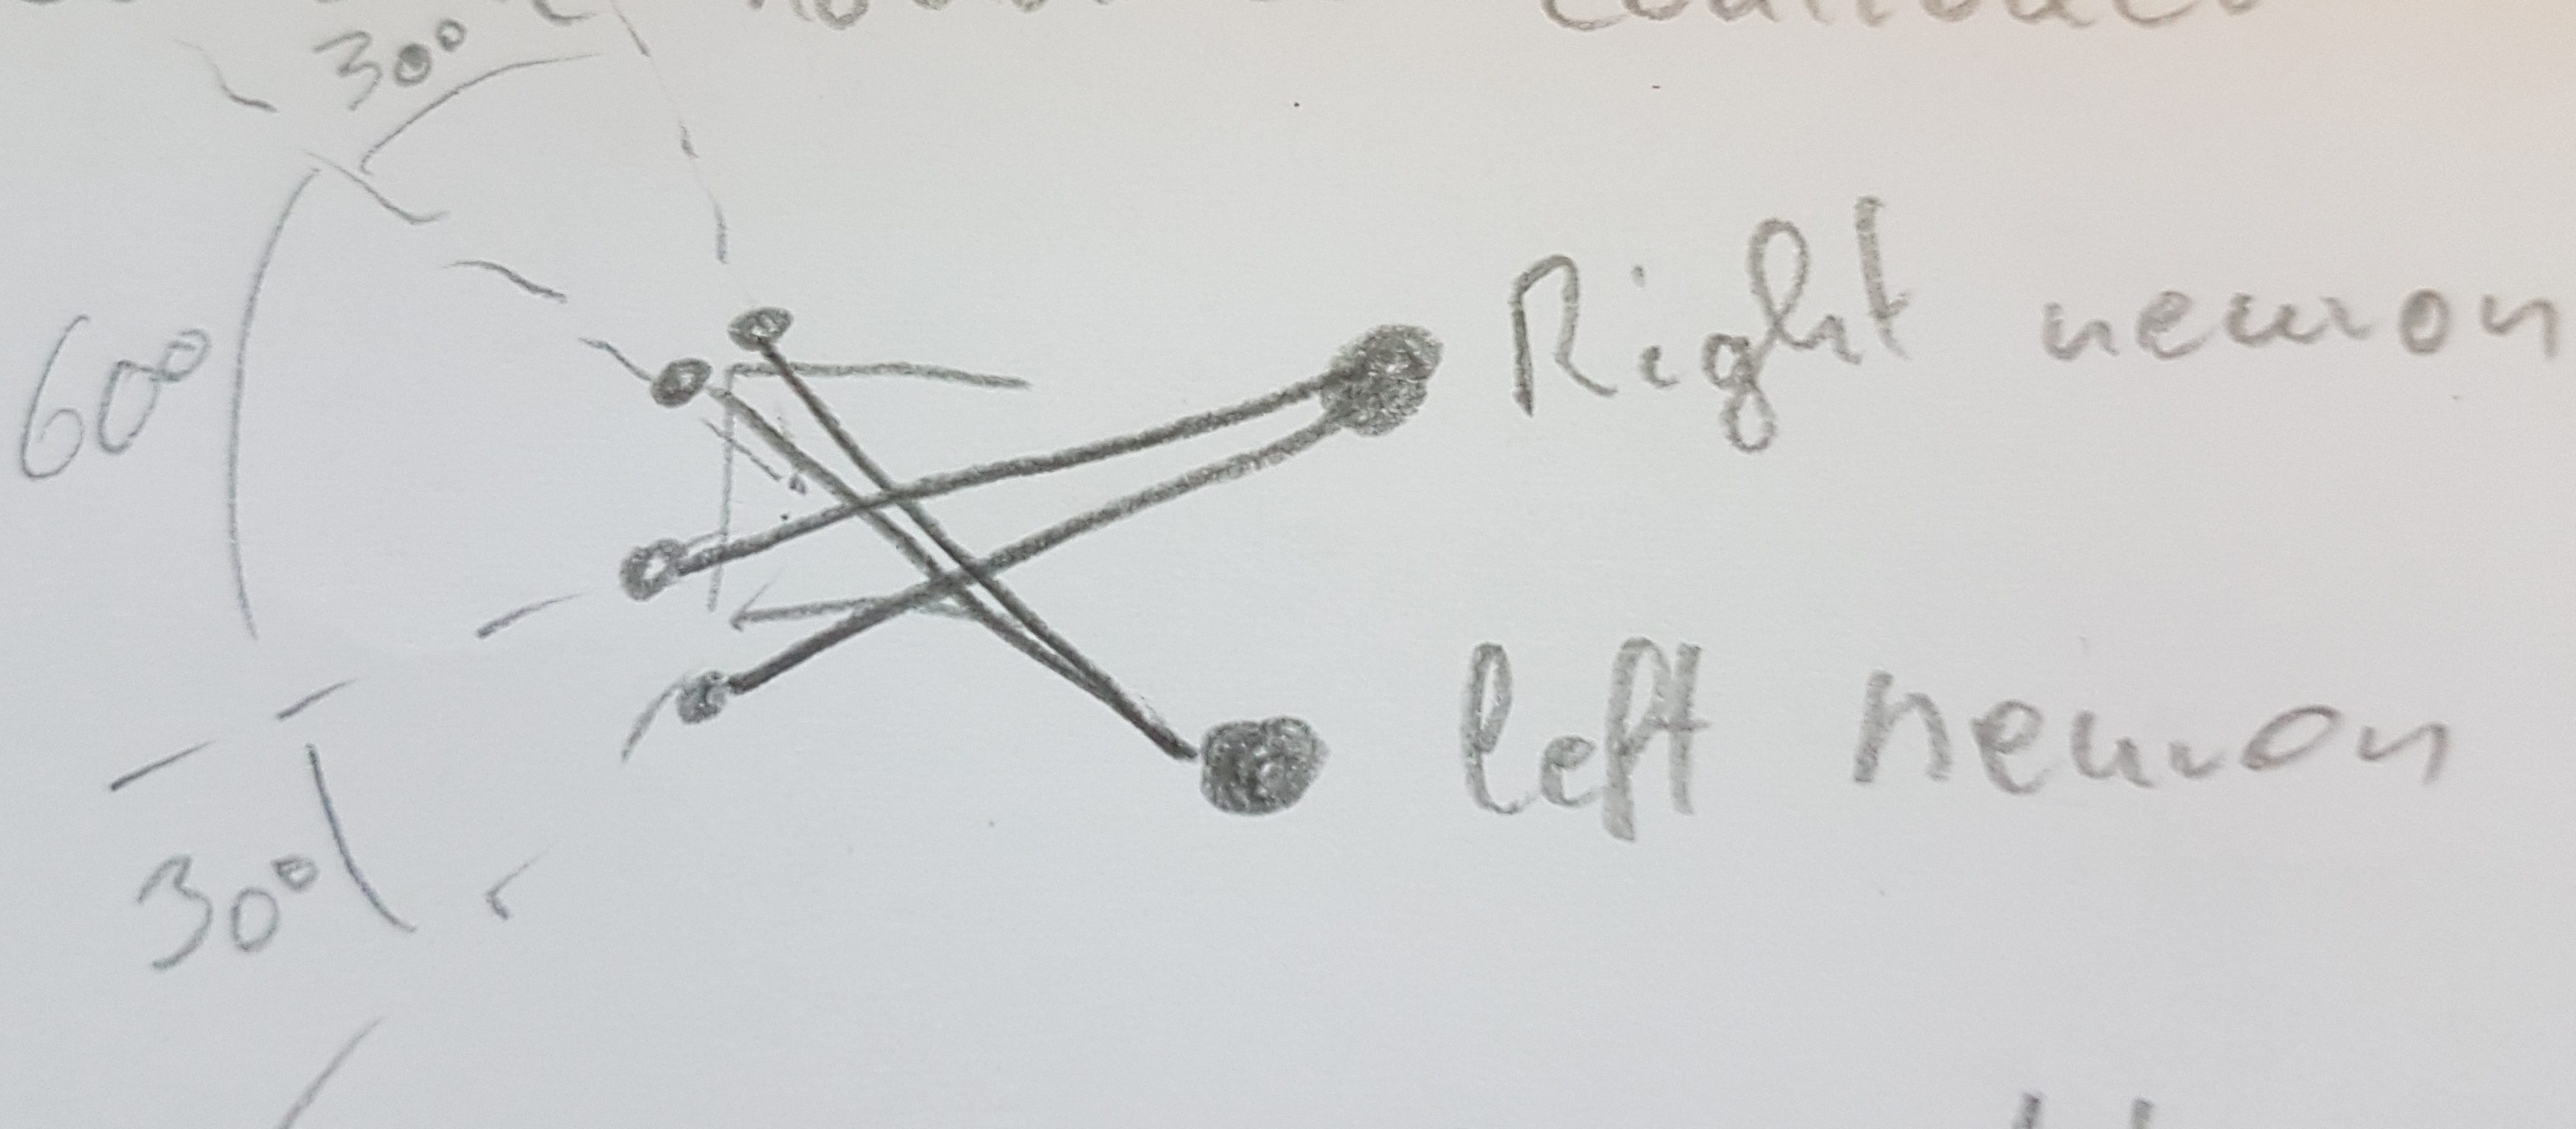 30°
60°
Right neuron
left neuron
30°